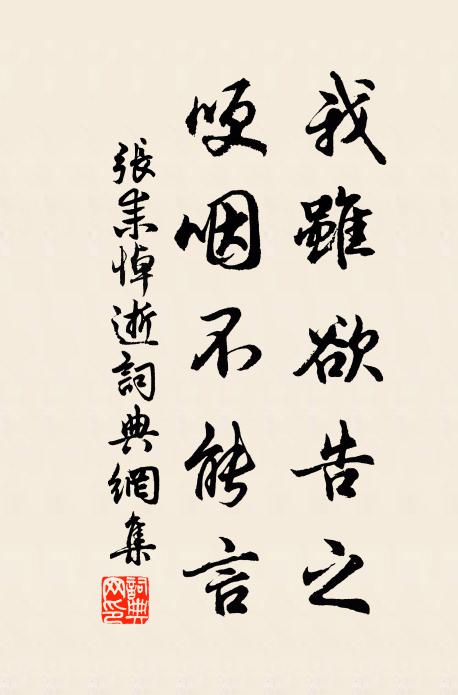 我雖欲告之
哽咽不能言
張耒悼逝詞典網集
詞典网印